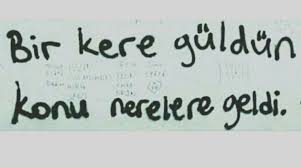 Bir kere güldün
konu nerelere geldi.